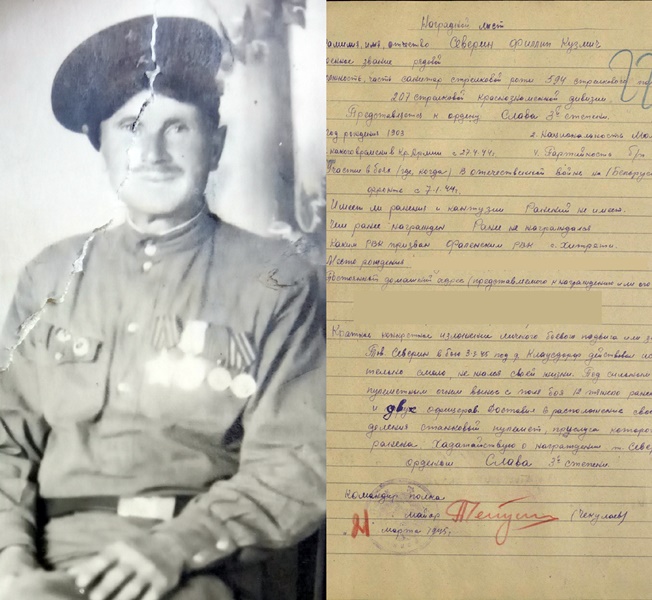 Наградной лист
Фамилия, имя, отчество Северин Филипп Кузмич
военное звание рядовой
санитар стрелковой роты 594 стрелкового
207 стрелковой Краснознаменской дивизии.
Представляется к ордену Слава 3й степени.
Год рождения 1903 2. Национальность
в Кр. Армии с 27.4.44г. 4. Партийность б/п
Участие в боях (где, когда) В отечественной войне на 1 Белорус
фронте с 7.1.44г.
Имеет ли ранения и контузии Ранений не имеет.
Чем ранее награжден Ранее не награждался
Каким РВК призван РВК
Место рождения
Постоянный домашний адрес (представляемого к награждению или его
Краткое конкретное изложение личного боевого подвига или
Тов. Северин в бою 3.3.45 год д. Клаусдорф действовал
тельно смело, не жалея своей жизни. Под сильным
пулеметным огнем вынес с поля боя 12 тяжело ране
и двух офицеров. Доставил в расположение сво
деления станковой пулемет, прислуга которо
ранена. Хадатайствую о награждении т. Севе
орденом Слава 3й степени.
Командир Полка
майор (Чекулаев)
21 марта 1945г.